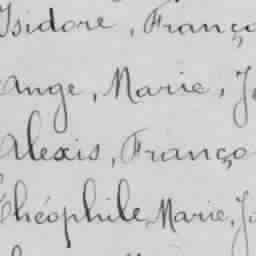 Isidore, Franço
Ange, Marie, J
Alexis, Franço
Théophile, Marie, J